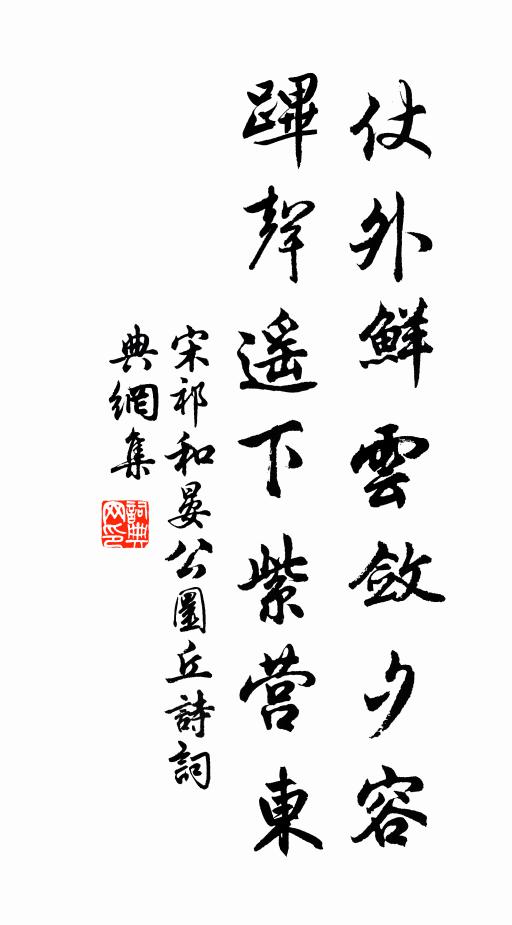 仗外鮮雲斂夕容
蹕聲遥下紫营東
宋祁和晏公圜丘詩詞
典網集
詞典
网印